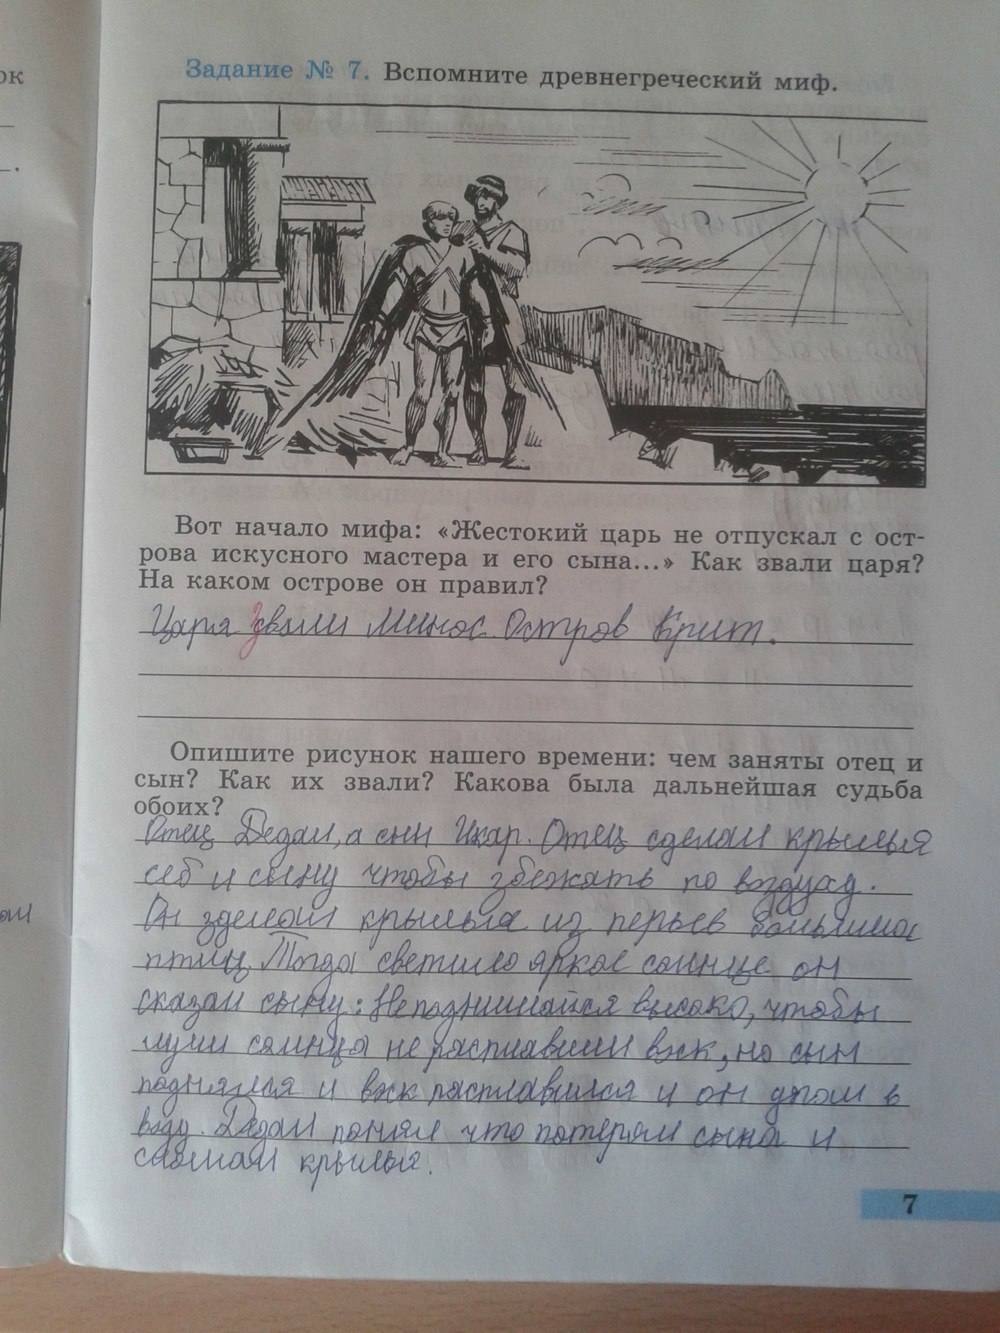 ок
Задание № 7. Вспомните древнегреческий миф.
Вот начало мифа: «Жестокий царь не отпускал с ост-
рова искусного мастера и его сына...» Как звали царя?
На каком острове он правил?
Царя звали Минос. Остров Крит.
Опишите рисунок нашего времени: чем заняты отец и
сын? Как их звали? Какова была дальнейшая судьба
обоих?
Отец Дедал, а сын Икар. Отец сделал крылья
себ и сыну чтобы збежать по воздуху.
Он зделал крылья из перьев больших
птиц. Тогда светило яркое солнце он
сказал сыну: Неподнимайся высоко, чтобы
лучи солнца не расплавили вск, но сын
поднялся и вск расплавился и он упал в
воду. Дедал понял что потерял сына и
сломал крылья.
7